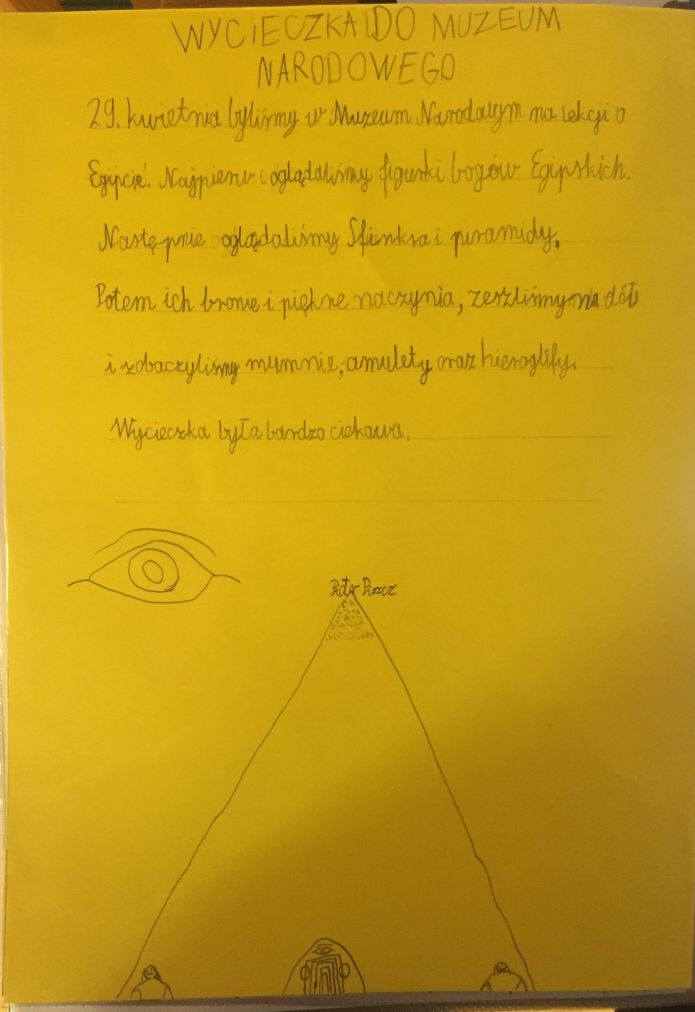 WYCIECZKA DO MUZEUM
NARODOWEGO
29. kwietnia byliśmy w Muzeum Narodowym na lekcji o
Egipcie. Najpierw oglądaliśmy figurki bogów Egipskich.
Następnie oglądaliśmy Sfinksa i piramidy.
Potem ich bronie i piękne naczynia, zeszliśmy na dół
i zobaczyliśmy mumnie, amulety oraz hieroglify.
Wycieczka była bardzo ciekawa.